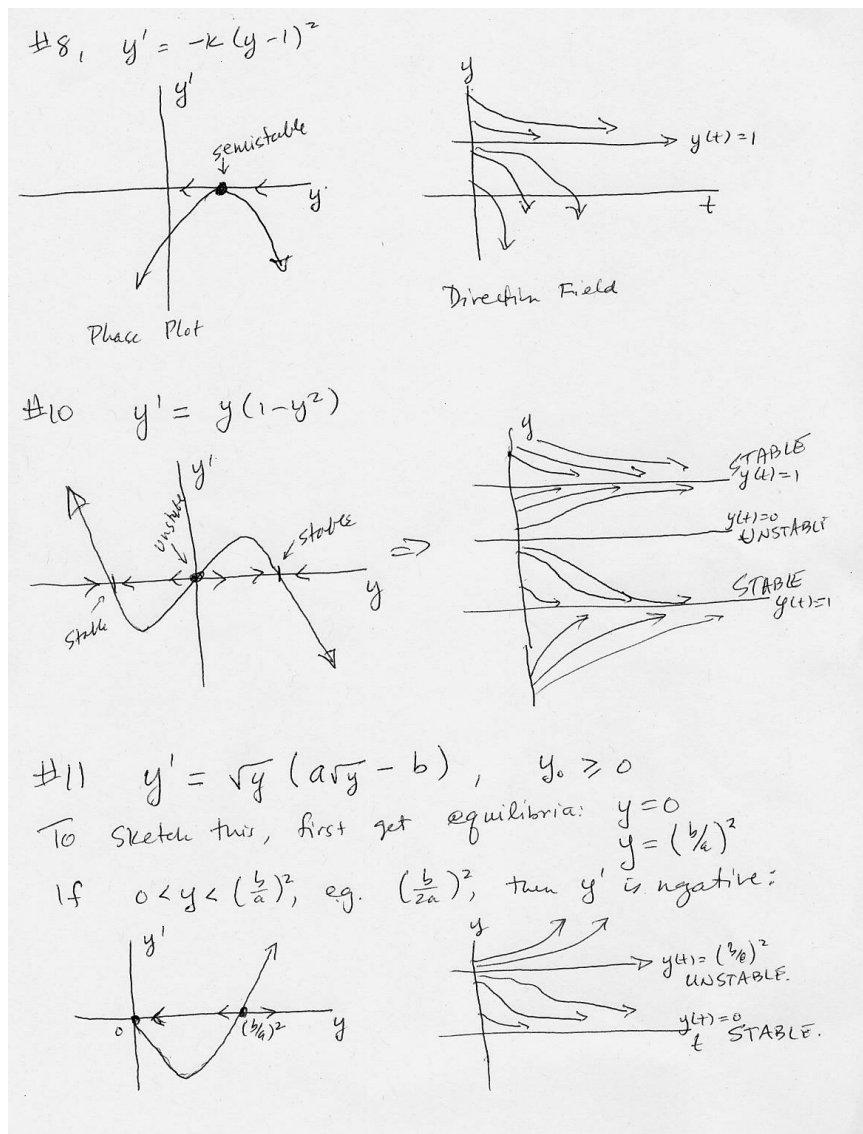 #8, y' = -k (y-1)²
y'
semistable
y
Phase Plot
y
y(t)=1
t
Direction Field
#10 y' = y(1-y²)
y'
unstable
stable
stable
y
⇒
y
STABLE
y(t)=1
y(t)=0
UNSTABLE
STABLE
y(t)=1
#11 y' = √y (a√y - b), y₀ ≥ 0
To sketch this, first get equilibria: y=0
y = (b/a)²
If 0<y<(b/a)², eg. (b/2a)², then y' is negative:
y'
0
(b/a)²
y
y
y(t)=(b/a)²
UNSTABLE.
y(t)=0
t STABLE.